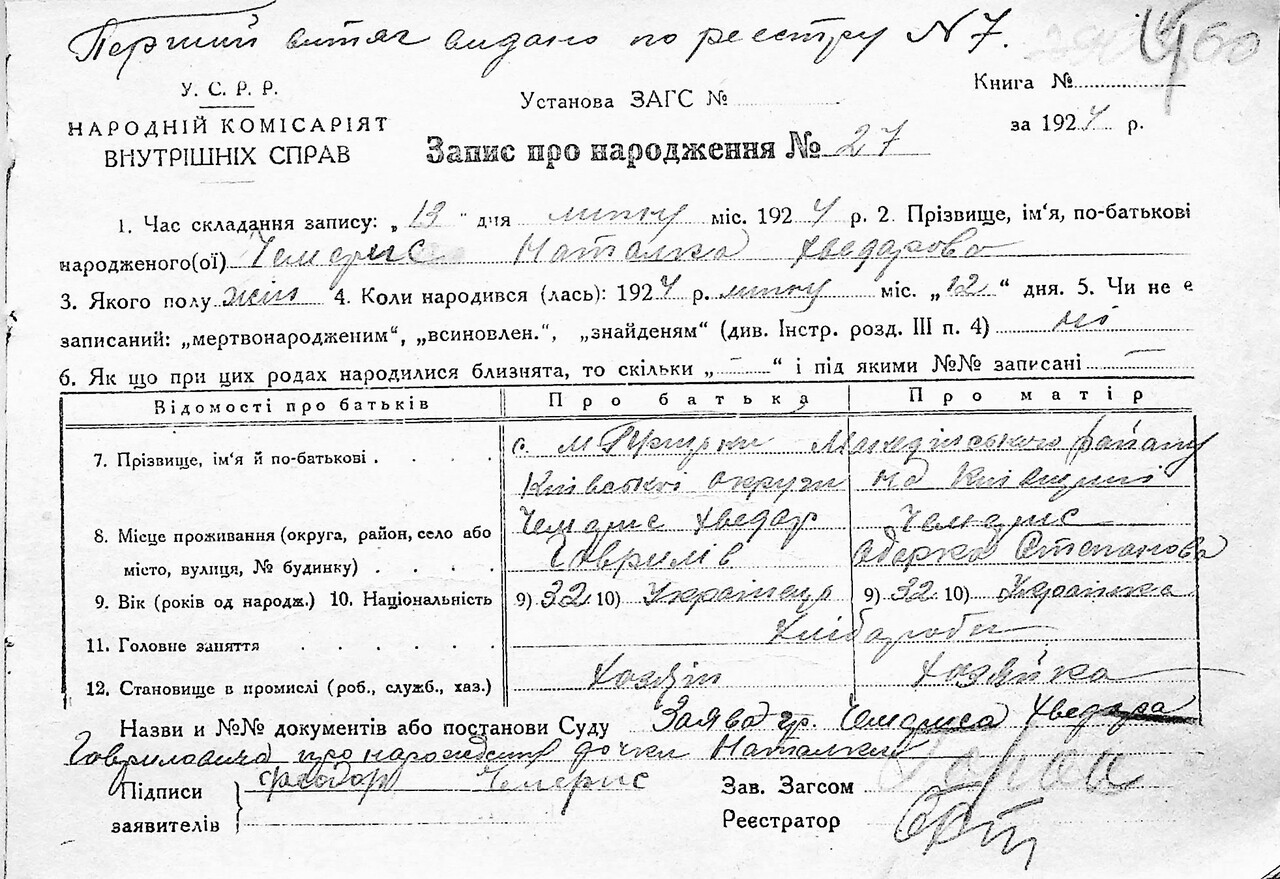 Перший витяг видано по реєстру N 7.
У. С. Р. Р.
НАРОДНІЙ КОМІСАРІЯТ
ВНУТРІШНІХ СПРАВ
Установа ЗАГС №
Книга №
за 1924 р.
Запис про народження № 27
1. Час складання запису: „ 13 " дня липню міс. 1924 р. 2. Прізвище, ім'я, по-батькові
народженого(ої) Чемерис Наталка Хведарова
3. Якого полу жін 4. Коли народився (лась): 1924 р. липню міс. „12" дня. 5. Чи не є
записаний: „мертвонародженим", „всиновлен.", „знайденям" (див. Інстр. розд. III п. 4) ні
6. Як що при цих родах народилися близнята, то скільки „ — " і під якими №№ записані —
Відомості про батьків Про батька Про матір
7. Прізвище, ім'я й по-батькові с. м району
Київської округи на Київщині
8. Місце проживання (округа, район, село або Чемерис Хведар Чемерис
місто, вулиця, № будинку) Гаврилів Одарка Степанова
9. Вік (років од народж.) 10. Національність 9) 32 10) Українець 9) 32 10) Українка
11. Головне заняття Хлібороби
12. Становище в промислі (роб., служб., хаз.) Хозяїн Хозяйка
Назви и №№ документів або постанови Суду Заява гр. Чемериса Хведара
Гавриловича про народження дочки Наталки
Підписи Чемерис
заявителів
Зав. Загсом
Реєстратор